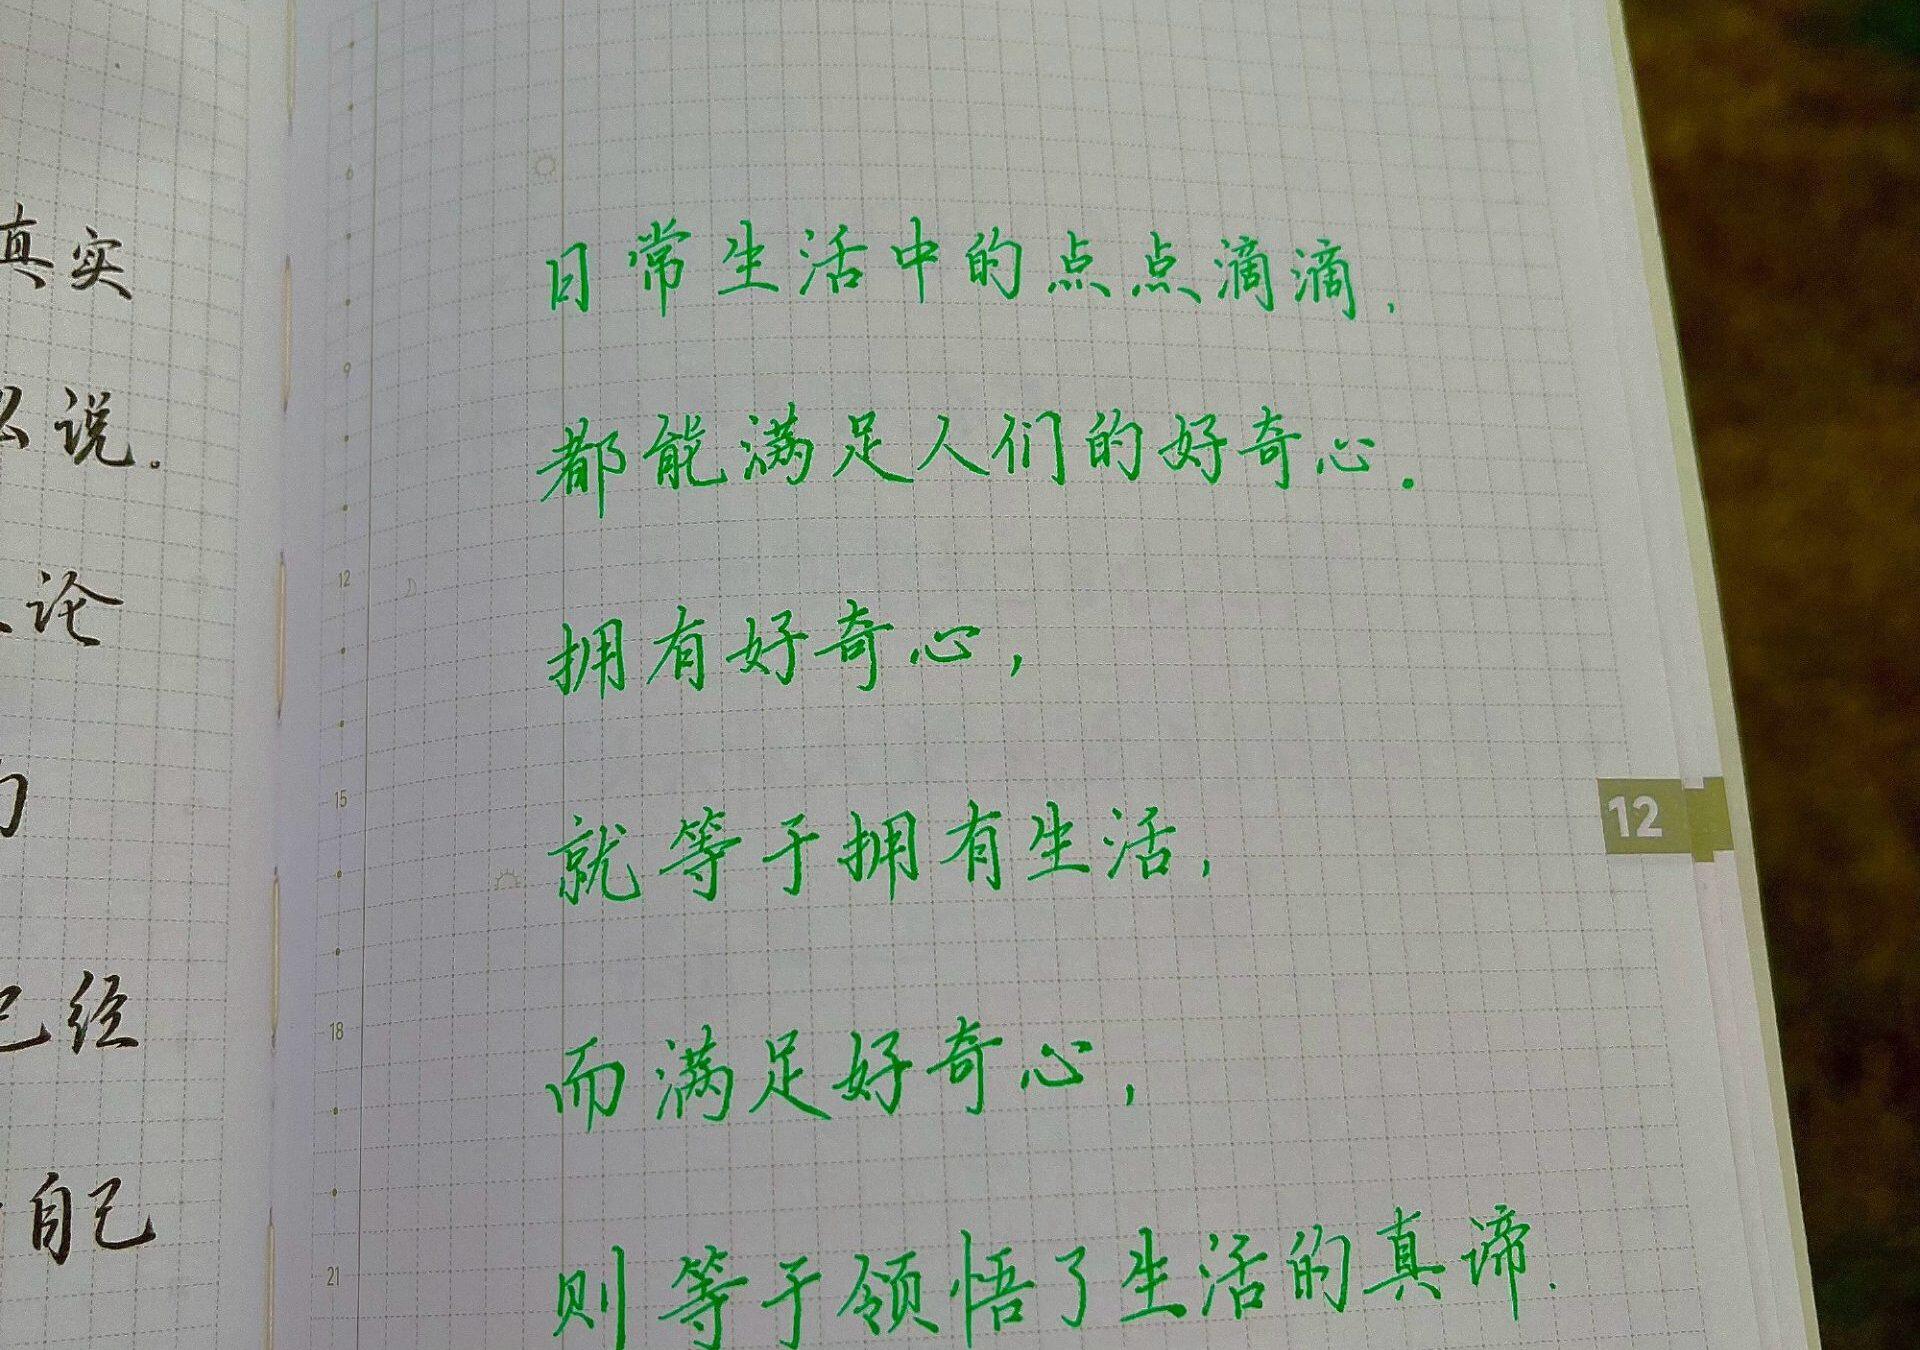 真实
么说。
论
的
已经
自己
6
日常生活中的点点滴滴，
9
都能满足人们的好奇心.
12
拥有好奇心，
15
就等于拥有生活，
12
18
而满足好奇心，
21
则等于领悟了生活的真谛.